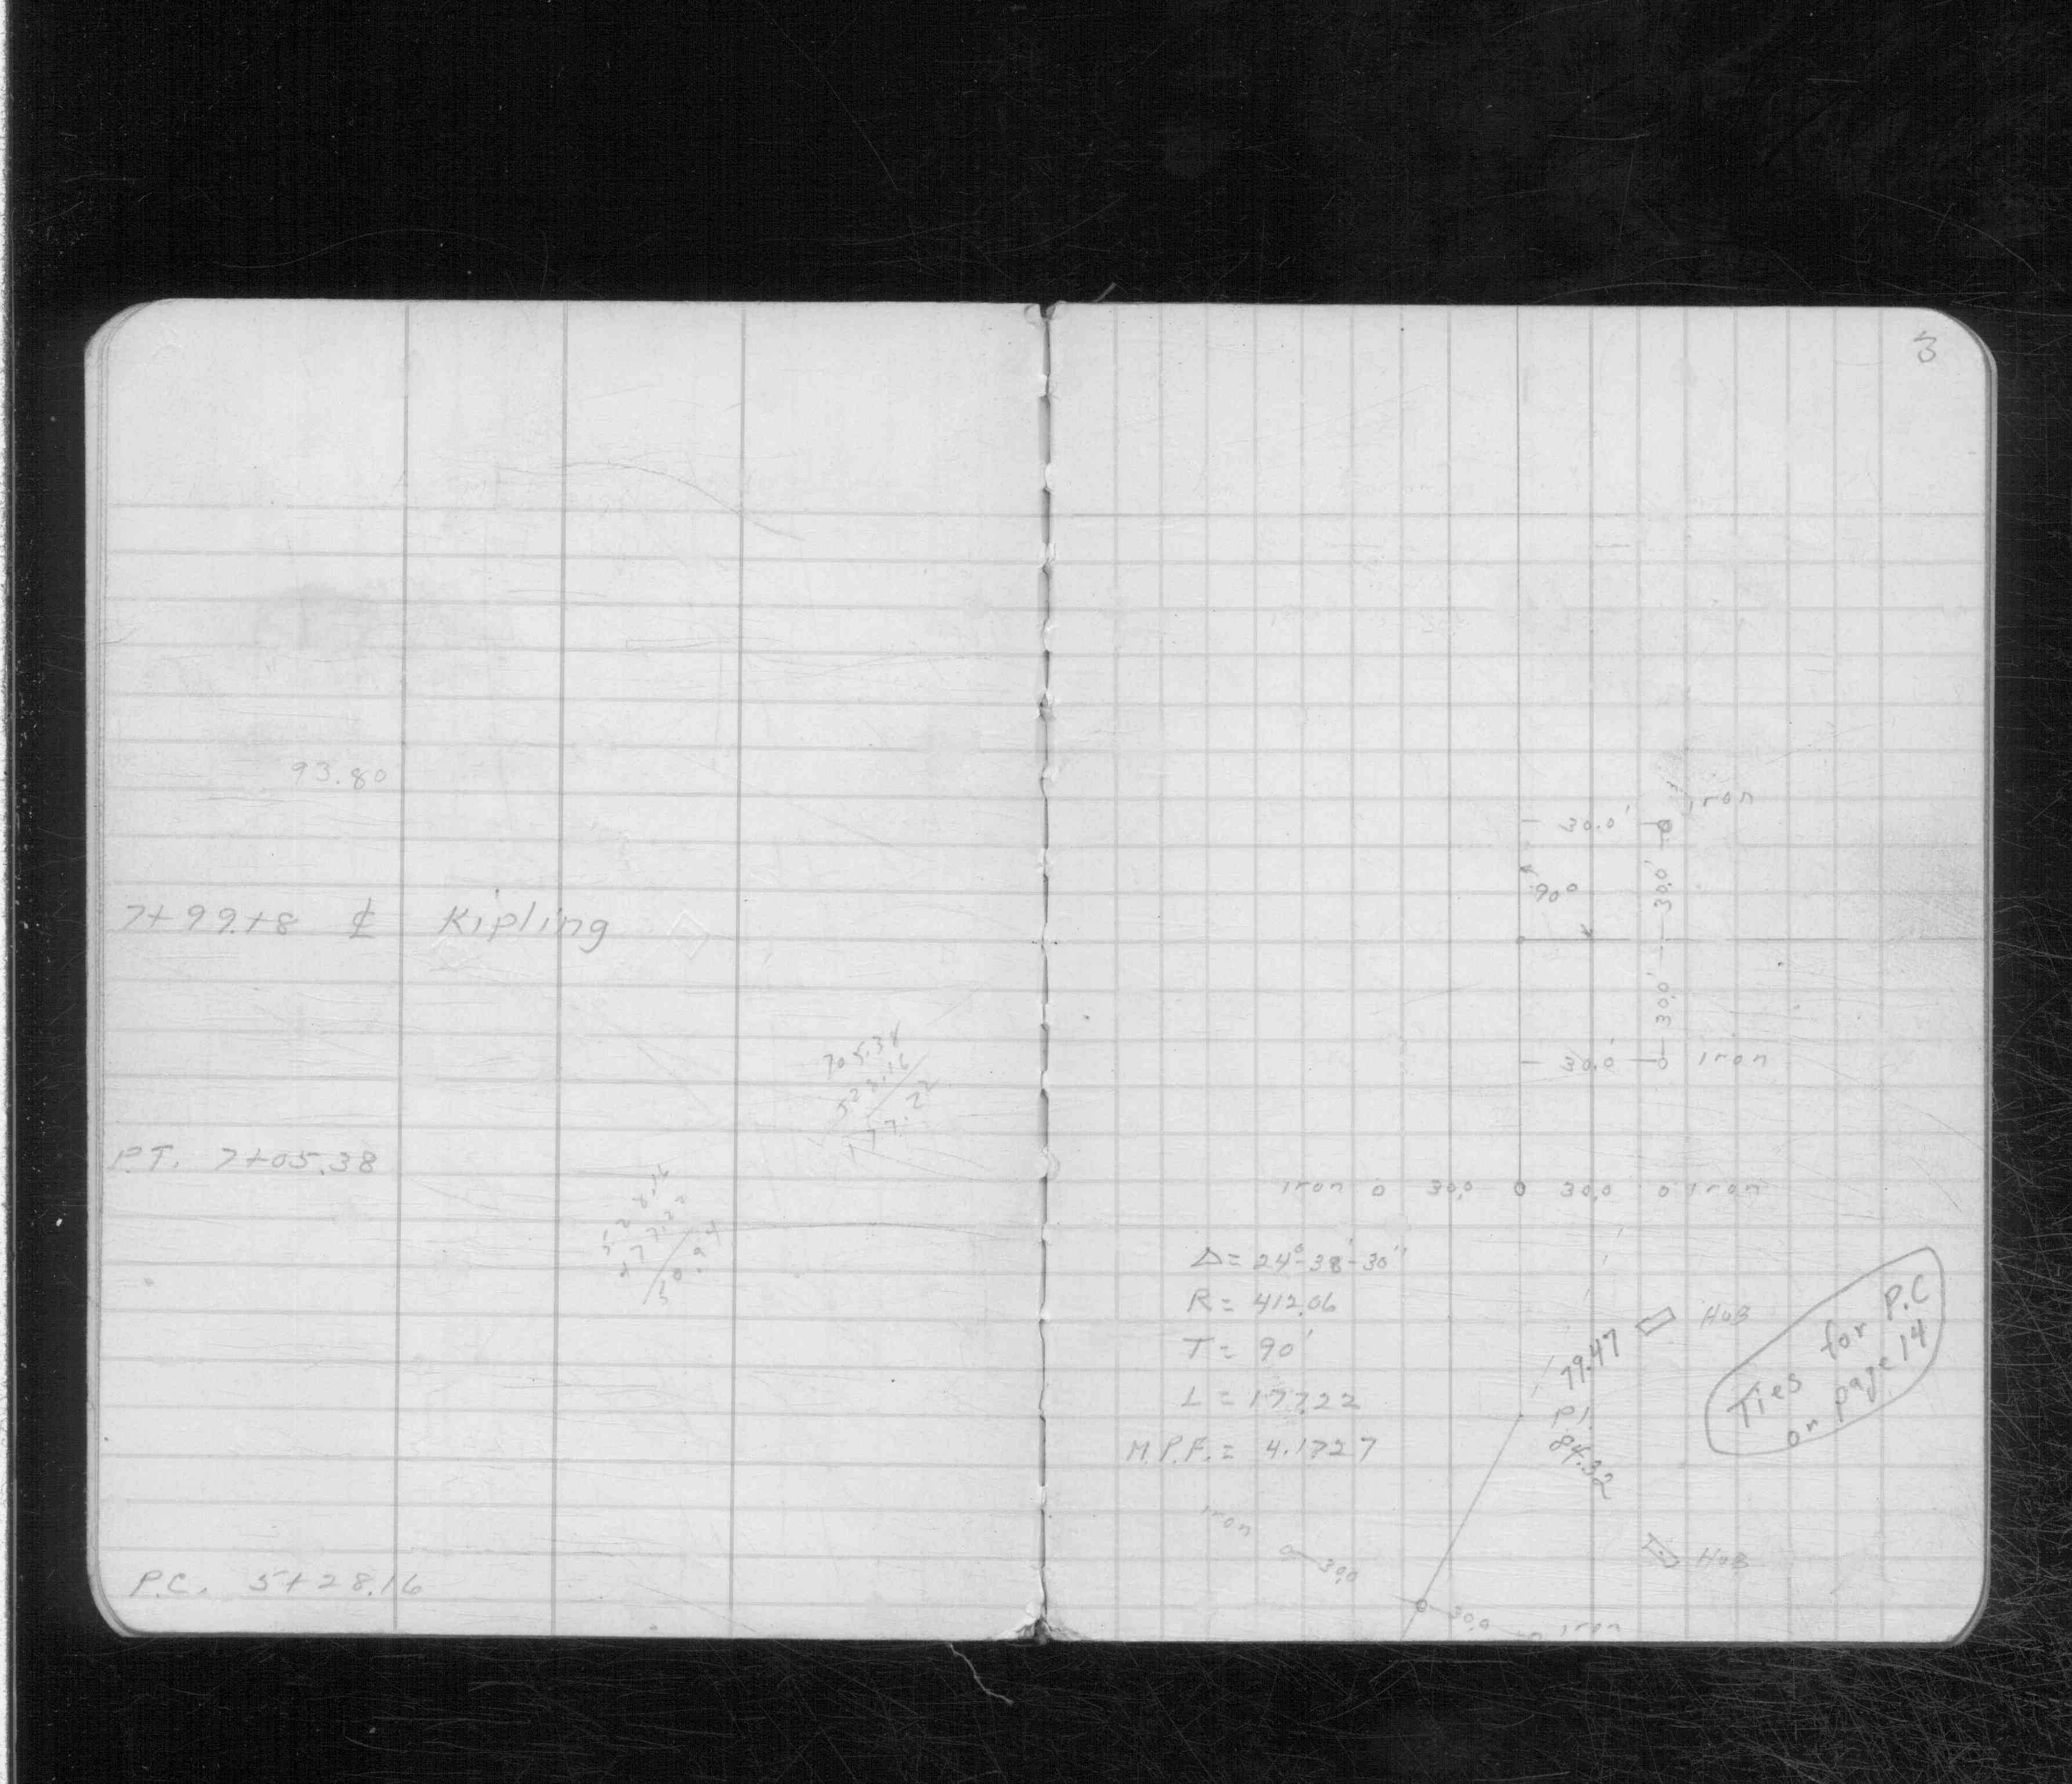 93.80
7+99.18 ⅊ Kipling
705.38
528.16
177.22
P.T. 7+05.38
528.16
P.C. 5+28.16
3
iron
30.0'
90°
30.0'
30.0'
30.0' iron
iron 30.0 30.0 iron
Δ = 24°-38'-30"
R = 412.06
T = 90'
L = 177.22
M.P.F. = 4.1727
79.47
HUB
P.I.
84.32
Ties for P.C
on page 14
iron
30.0
HUB
30.0 iron